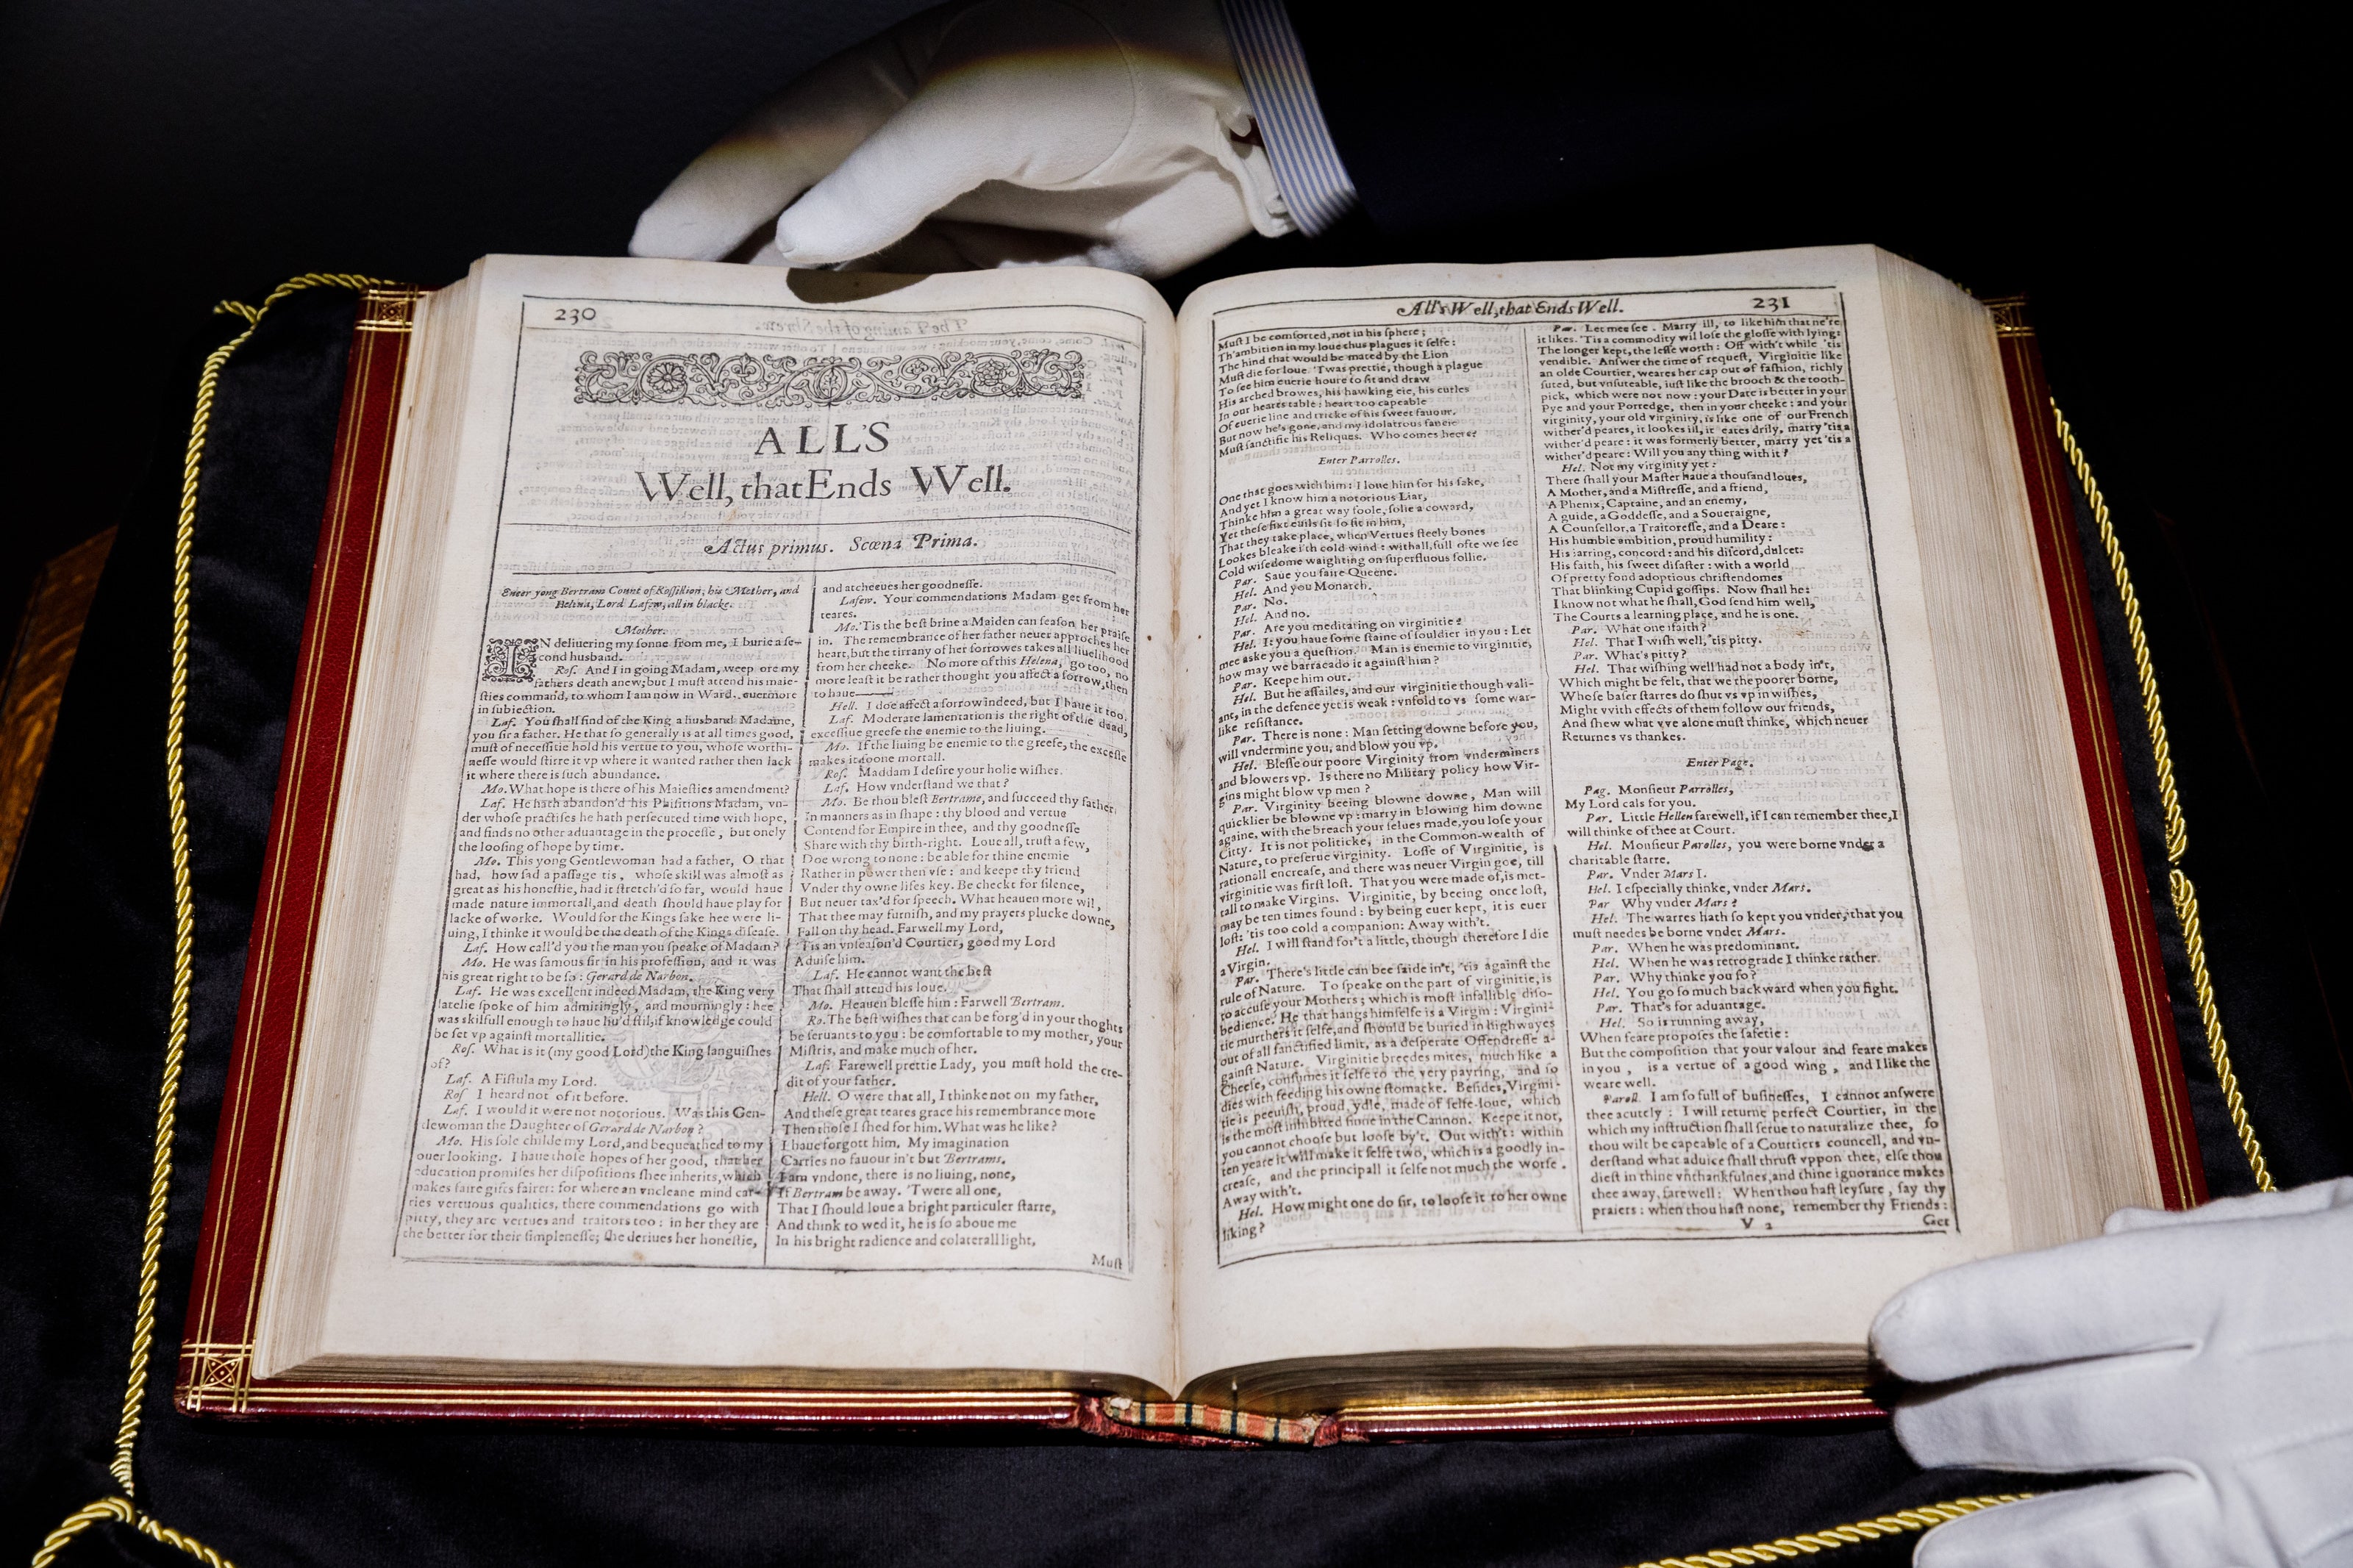 230
ALL'S
Well, that Ends Well.
Actus primus. Scœna Prima.
Enter yong Bertram Count of Roſſillion, his Mother, and
Helena, Lord Lafew, all in blacke.
Mother.
IN deliuering my ſonne from me, I burie a ſe-
cond husband.
Roſ. And I in going Madam, weep ore my
fathers death anew; but I muſt attend his maie-
ſties command, to whom I am now in Ward, euermore
in ſubiection.
Laf. You ſhall find of the King a husband Madame,
you ſir a father. He that ſo generally is at all times good,
muſt of neceſſitie hold his vertue to you, whoſe worthi-
neſſe would ſtirre it vp where it wanted rather then lack
it where there is ſuch abundance.
Mo. What hope is there of his Maieſties amendment?
Laf. He hath abandon'd his Phiſitions Madam, vn-
der whoſe practiſes he hath perſecuted time with hope,
and finds no other aduantage in the proceſſe, but onely
the looſing of hope by time.
Mo. This yong Gentlewoman had a father, O that
had, how ſad a paſſage tis, whoſe skill was almoſt as
great as his honeſtie, had it ſtretch'd ſo far, would haue
made nature immortall, and death ſhould haue play for
lacke of worke. Would for the Kings ſake hee were li-
uing, I thinke it would be the death of the Kings diſeaſe.
Laf. How call'd you the man you ſpeake of Madam?
Mo. He was famous ſir in his profeſſion, and it was
his great right to be ſo: Gerard de Narbon.
Laf. He was excellent indeed Madam, the King very
latelie ſpoke of him admiringly, and mourningly: hee
was skilfull enough to haue liu'd ſtil, if knowledge could
be ſet vp againſt mortallitie.
Roſ. What is it (my good Lord) the King languiſhes
of?
Laf. A Fiſtula my Lord.
Roſ. I heard not of it before.
Laf. I would it were not notorious. Was this Gen-
tlewoman the Daughter of Gerard de Narbon?
Mo. His ſole childe my Lord, and bequeathed to my
ouer looking. I haue thoſe hopes of her good, that her
education promiſes her diſpoſitions ſhee inherits, which
makes faire gifts fairer: for where an vncleane mind car-
ries vertuous qualities, there commendations go with
pitty, they are vertues and traitors too: in her they are
the better for their ſimpleneſſe; ſhe deriues her honeſtie,
and atcheeues her goodneſſe.
Lafew. Your commendations Madam get from her
teares.
Mo. 'Tis the beſt brine a Maiden can ſeaſon her praiſe
in. The remembrance of her father neuer approches her
heart, but the tirrany of her ſorrowes takes all liuelihood
from her cheeke. No more of this Helena, go too, no
more leaſt it be rather thought you affect a ſorrow, then
to haue——
Hell. I doe affect a ſorrow indeed, but I haue it too.
Laf. Moderate lamentation is the right of the dead,
exceſſiue greefe the enemie to the liuing.
Mo. If the liuing be enemie to the greefe, the exceſſe
makes it ſoone mortall.
Roſ. Maddam I deſire your holie wiſhes.
Laf. How vnderſtand we that?
Mo. Be thou bleſt Bertrame, and ſucceed thy father
In manners as in ſhape: thy blood and vertue
Contend for Empire in thee, and thy goodneſſe
Share with thy birth-right. Loue all, truſt a few,
Doe wrong to none: be able for thine enemie
Rather in power then vſe: and keepe thy friend
Vnder thy owne lifes key. Be checkt for ſilence,
But neuer tax'd for ſpeech. What heauen more wil,
That thee may furniſh, and my prayers plucke downe,
Fall on thy head. Farwell my Lord,
'Tis an vnſeaſon'd Courtier, good my Lord
Aduiſe him.
Laf. He cannot want the beſt
That ſhall attend his loue.
Mo. Heauen bleſſe him: Farwell Bertram.
Ro. The beſt wiſhes that can be forg'd in your thoghts
be ſeruants to you: be comfortable to my mother, your
Miſtris, and make much of her.
Laf. Farewell prettie Lady, you muſt hold the cre-
dit of your father.
Hell. O were that all, I thinke not on my father,
And theſe great teares grace his remembrance more
Then thoſe I ſhed for him. What was he like?
I haue forgott him. My imagination
Carries no fauour in't but Bertrams.
I am vndone, there is no liuing, none,
If Bertram be away. 'Twere all one,
That I ſhould loue a bright particuler ſtarre,
And think to wed it, he is ſo aboue me
In his bright radience and colaterall light,
Muſt
All's Well, that Ends Well. 231
Muſt I be comforted, not in his ſphere;
Th'ambition in my loue thus plagues it ſelfe:
The hind that would be mated by the Lion
Muſt die for loue. 'Twas prettie, though a plague
To ſee him euerie houre to ſit and draw
His arched browes, his hawking eie, his curles
In our hearts table: heart too capeable
Of euerie line and tricke of his ſweet fauour.
But now he's gone, and my idolatrous fancie
Muſt ſanctifie his Reliques. Who comes heere?
Enter Parrolles.
One that goes with him: I loue him for his ſake,
And yet I know him a notorious Liar,
Thinke him a great way foole, ſolie a coward,
Yet theſe fixt euils ſit ſo fit in him,
That they take place, when Vertues ſteely bones
Lookes bleake i'th cold wind: withall, full ofte we ſee
Cold wiſedome waighting on ſuperfluous follie.
Par. Saue you faire Queene.
Hel. And you Monarch.
Par. No.
Hel. And no.
Par. Are you meditating on virginitie?
Hel. I: you haue ſome ſtaine of ſouldier in you: Let
mee aske you a queſtion. Man is enemie to virginitie,
how may we barracado it againſt him?
Par. Keepe him out.
Hel. But he aſſailes, and our virginitie though vali-
ant, in the defence yet is weak: vnfold to vs ſome war-
like reſiſtance.
Par. There is none: Man ſetting downe before you,
will vndermine you, and blow you vp.
Hel. Bleſſe our poore Virginity from vnderminers
and blowers vp. Is there no Military policy how Vir-
gins might blow vp men?
Par. Virginity beeing blowne downe, Man will
quicklier be blowne vp: marry in blowing him downe
againe, with the breach your ſelues made, you loſe your
Citty. It is not politicke, in the Common-wealth of
Nature, to preſerue virginity. Loſſe of Virginitie, is
rationall encreaſe, and there was neuer Virgin goe, till
virginitie was firſt loſt. That you were made of, is met-
tall to make Virgins. Virginitie, by beeing once loſt,
may be ten times found: by being euer kept, it is euer
loſt: 'tis too cold a companion: Away with't.
Hel. I will ſtand for't a little, though therefore I die
a Virgin.
Par. There's little can bee ſaide in't, 'tis againſt the
rule of Nature. To ſpeake on the part of virginitie, is
to accuſe your Mothers; which is moſt infallible diſo-
bedience. He that hangs himſelfe is a Virgin: Virgini-
tie murthers it ſelfe, and ſhould be buried in highwayes
out of all ſanctified limit, as a deſperate Offendreſſe a-
gainſt Nature. Virginitie breedes mites, much like a
Cheeſe, conſumes it ſelfe to the very payring, and ſo
dies with feeding his owne ſtomacke. Beſides, Virgini-
tie is peeuiſh, proud, ydle, made of ſelfe-loue, which
is the moſt inhibited ſinne in the Cannon. Keepe it not,
you cannot chooſe but looſe by't. Out with't: within
ten yeare it will make it ſelfe two, which is a goodly in-
creaſe, and the principall it ſelfe not much the worſe.
Away with't.
Hel. How might one do ſir, to looſe it to her owne
liking?
Par. Let mee ſee. Marry ill, to like him that ne're
it likes. 'Tis a commodity wil loſe the gloſſe with lying:
The longer kept, the leſſe worth: Off with't while 'tis
vendible. Anſwer the time of requeſt, Virginitie like
an olde Courtier, weares her cap out of faſhion, richly
ſuted, but vnſuteable, iuſt like the brooch & the tooth-
pick, which were not now: your Date is better in your
Pye and your Porredge, then in your cheeke: and your
virginity, your old virginity, is like one of our French
wither'd peares, it lookes ill, it eates drily, marry 'tis a
wither'd peare: it was formerly better, marry yet 'tis a
wither'd peare: Will you any thing with it?
Hel. Not my virginity yet:
There ſhall your Maſter haue a thouſand loues,
A Mother, and a Miſtreſſe, and a friend,
A Phenix, Captaine, and an enemy,
A guide, a Goddeſſe, and a Soueraigne,
A Counſellor, a Traitoreſſe, and a Deare:
His humble ambition, proud humility:
His iarring, concord: and his diſcord, dulcet:
His faith, his ſweet diſaſter: with a world
Of pretty fond adoptious chriſtendomes
That blinking Cupid goſſips. Now ſhall he:
I know not what he ſhall, God ſend him well,
The Courts a learning place, and he is one.
Par. What one ifaith?
Hel. That I wiſh well, 'tis pitty.
Par. What's pitty?
Hel. That wiſhing well had not a body in't,
Which might be felt, that we the poorer borne,
Whoſe baſer ſtarres do ſhut vs vp in wiſhes,
Might vvith effects of them follow our friends,
And ſhew what vve alone muſt thinke, which neuer
Returnes vs thankes.
Enter Page.
Pag. Monſieur Parrolles,
My Lord cals for you.
Par. Little Hellen farewell, if I can remember thee, I
will thinke of thee at Court.
Hel. Monſieur Parolles, you were borne vnder a
charitable ſtarre.
Par. Vnder Mars I.
Hel. I eſpecially thinke, vnder Mars.
Par Why vnder Mars?
Hel. The warres hath ſo kept you vnder, that you
muſt needes be borne vnder Mars.
Par. When he was predominant.
Hel. When he was retrograde I thinke rather.
Par. Why thinke you ſo?
Hel. You go ſo much backward when you fight.
Par. That's for aduantage.
Hel. So is running away,
When feare propoſes the ſafetie:
But the compoſition that your valour and feare makes
in you, is a vertue of a good wing, and I like the
weare well.
Paroll. I am ſo full of buſineſſes, I cannot anſwere
thee acutely: I will returne perfect Courtier, in the
which my inſtruction ſhall ſerue to naturalize thee, ſo
thou wilt be capeable of a Courtiers councell, and vn-
derſtand what aduice ſhall thruſt vppon thee, elſe thou
dieſt in thine vnthankfulnes, and thine ignorance makes
thee away, farewell: When thou haſt leyſure, ſay thy
praiers: when thou haſt none, remember thy Friends:
V 2 Get